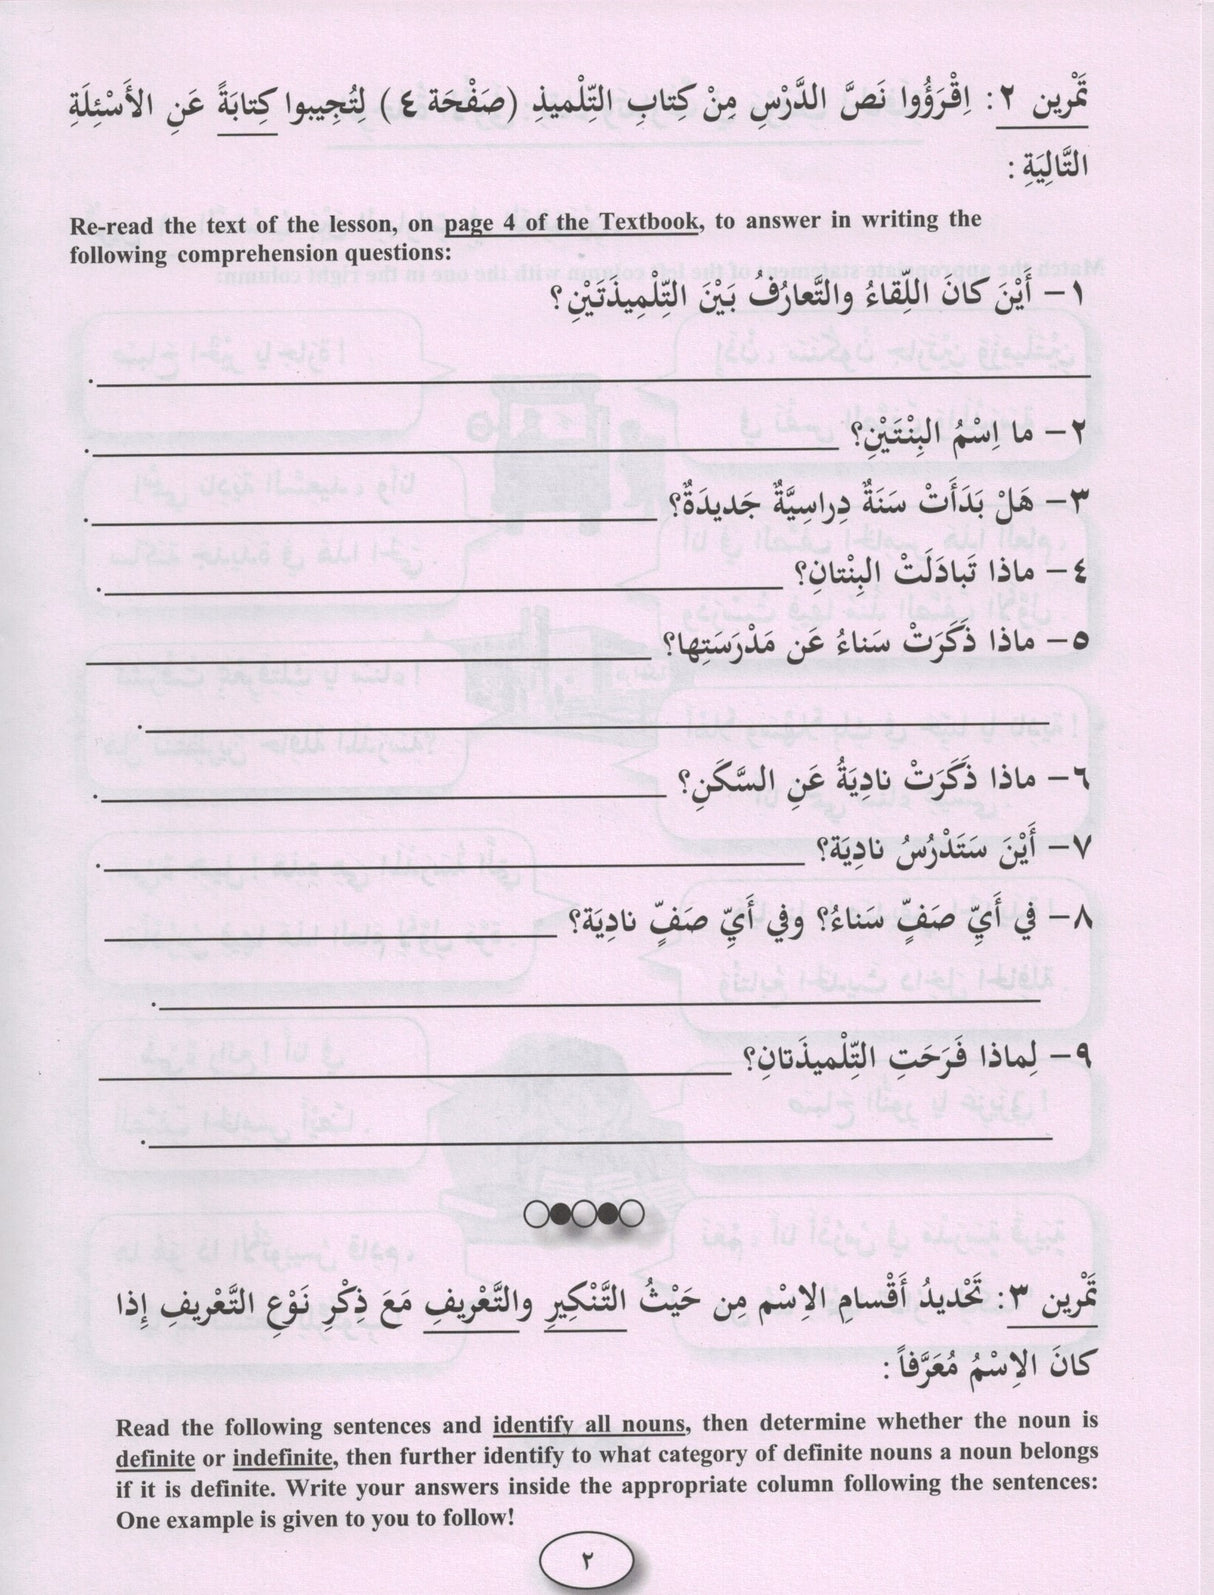 تَمْرين ٢: اِقْرَؤُوا نَصَّ الدَّرْسِ مِنْ كِتابِ التِّلْميذِ (صَفْحَة ٤) لِتُجِيبوا كِتابَةً عَنِ الأَسْئِلَةِ
التَّالِيَةِ :
Re-read the text of the lesson, on page 4 of the Textbook, to answer in writing the
following comprehension questions:
١- أَيْنَ كانَ اللِّقاءُ والتَّعارُفُ بَيْنَ التِّلْمِيذَتَيْنِ؟
٢- ما اِسْمُ البِنْتَيْنِ؟
٣- هَلْ بَدَأَتْ سَنَةٌ دِراسِيَّةٌ جَديدَةٌ؟
٤- ماذا تَبادَلَتْ البِنْتانِ؟
٥- ماذا ذَكَرَتْ سَناءُ عَن مَدْرَسَتِها؟
٦- ماذا ذَكَرَتْ نادِيَةُ عَنِ السَّكَنِ؟
٧- أَيْنَ سَتَدْرُسُ نادِيَة؟
٨- في أَيِّ صَفٍّ سَناءُ؟ وفي أَيِّ صَفٍّ نادِيَة؟
٩- لِماذا فَرَحَتِ التِّلْميذَتانِ؟
تَمْرين ٣: تَحْديدُ أَقْسامِ الاِسْم مِن حَيْثُ التَّنْكيرِ والتَّعْريفِ مَعَ ذِكْرِ نَوْعِ التَّعْريفِ إِذا
كانَ الاِسْمُ مُعَرَّفاً :
Read the following sentences and identify all nouns, then determine whether the noun is
definite or indefinite, then further identify to what category of definite nouns a noun belongs
if it is definite. Write your answers inside the appropriate column following the sentences:
One example is given to you to follow!
٢